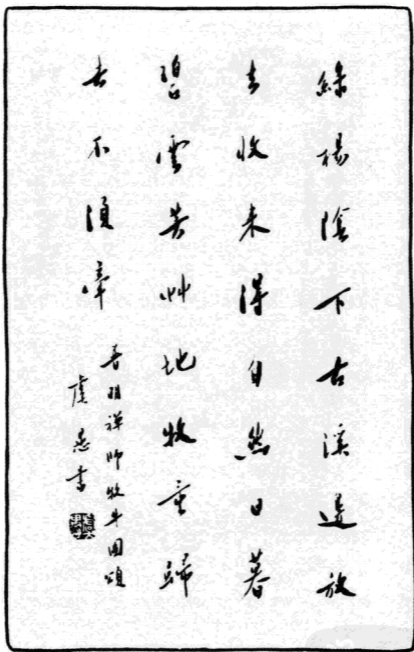 綠楊陰下古溪邊放
去收來得自然日暮
碧雲芳艸地牧童歸
去不須牽
普明禪師牧牛圖頌
虞愚書